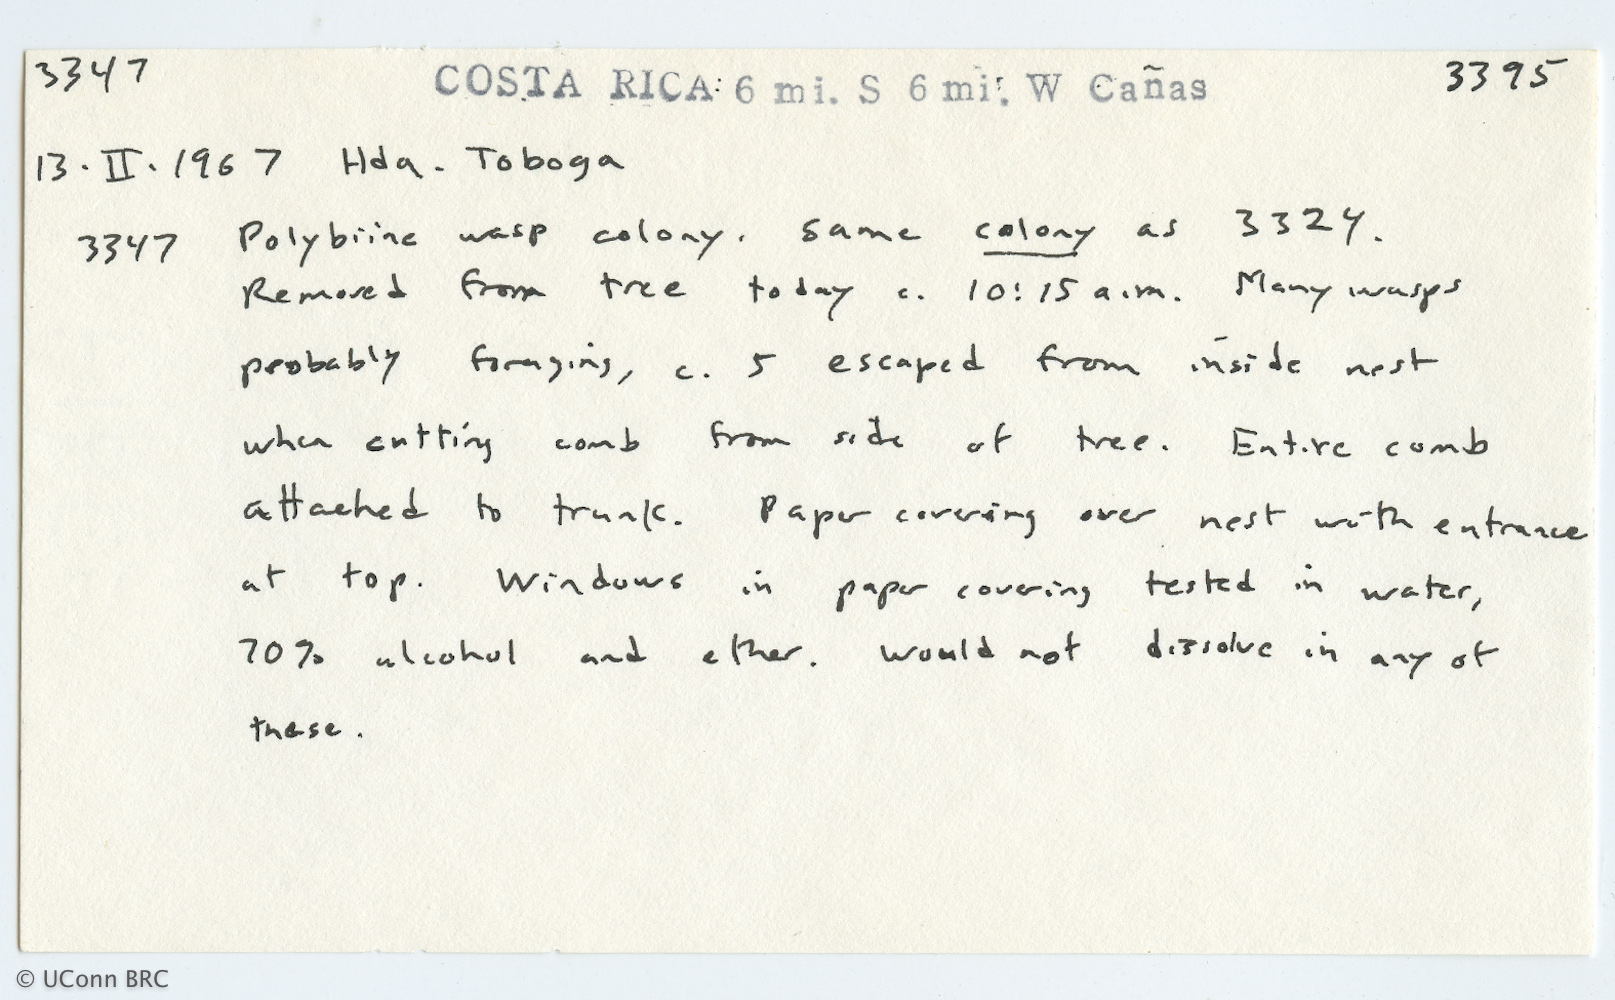 3347 COSTA RICA: 6 mi. S 6 mi. W Cañas 3395
13.II.1967 Hda. Toboga
3347 Polybiine wasp colony. Same colony as 3324.
Removed from tree today c. 10:15 a.m. Many wasps
probably foraging, c. 5 escaped from inside nest
when cutting comb from side of tree. Entire comb
attached to trunk. Paper covering over nest with entrance
at top. Windows in paper covering tested in water,
70% alcohol and ether. Would not dissolve in any of
these.
© UConn BRC